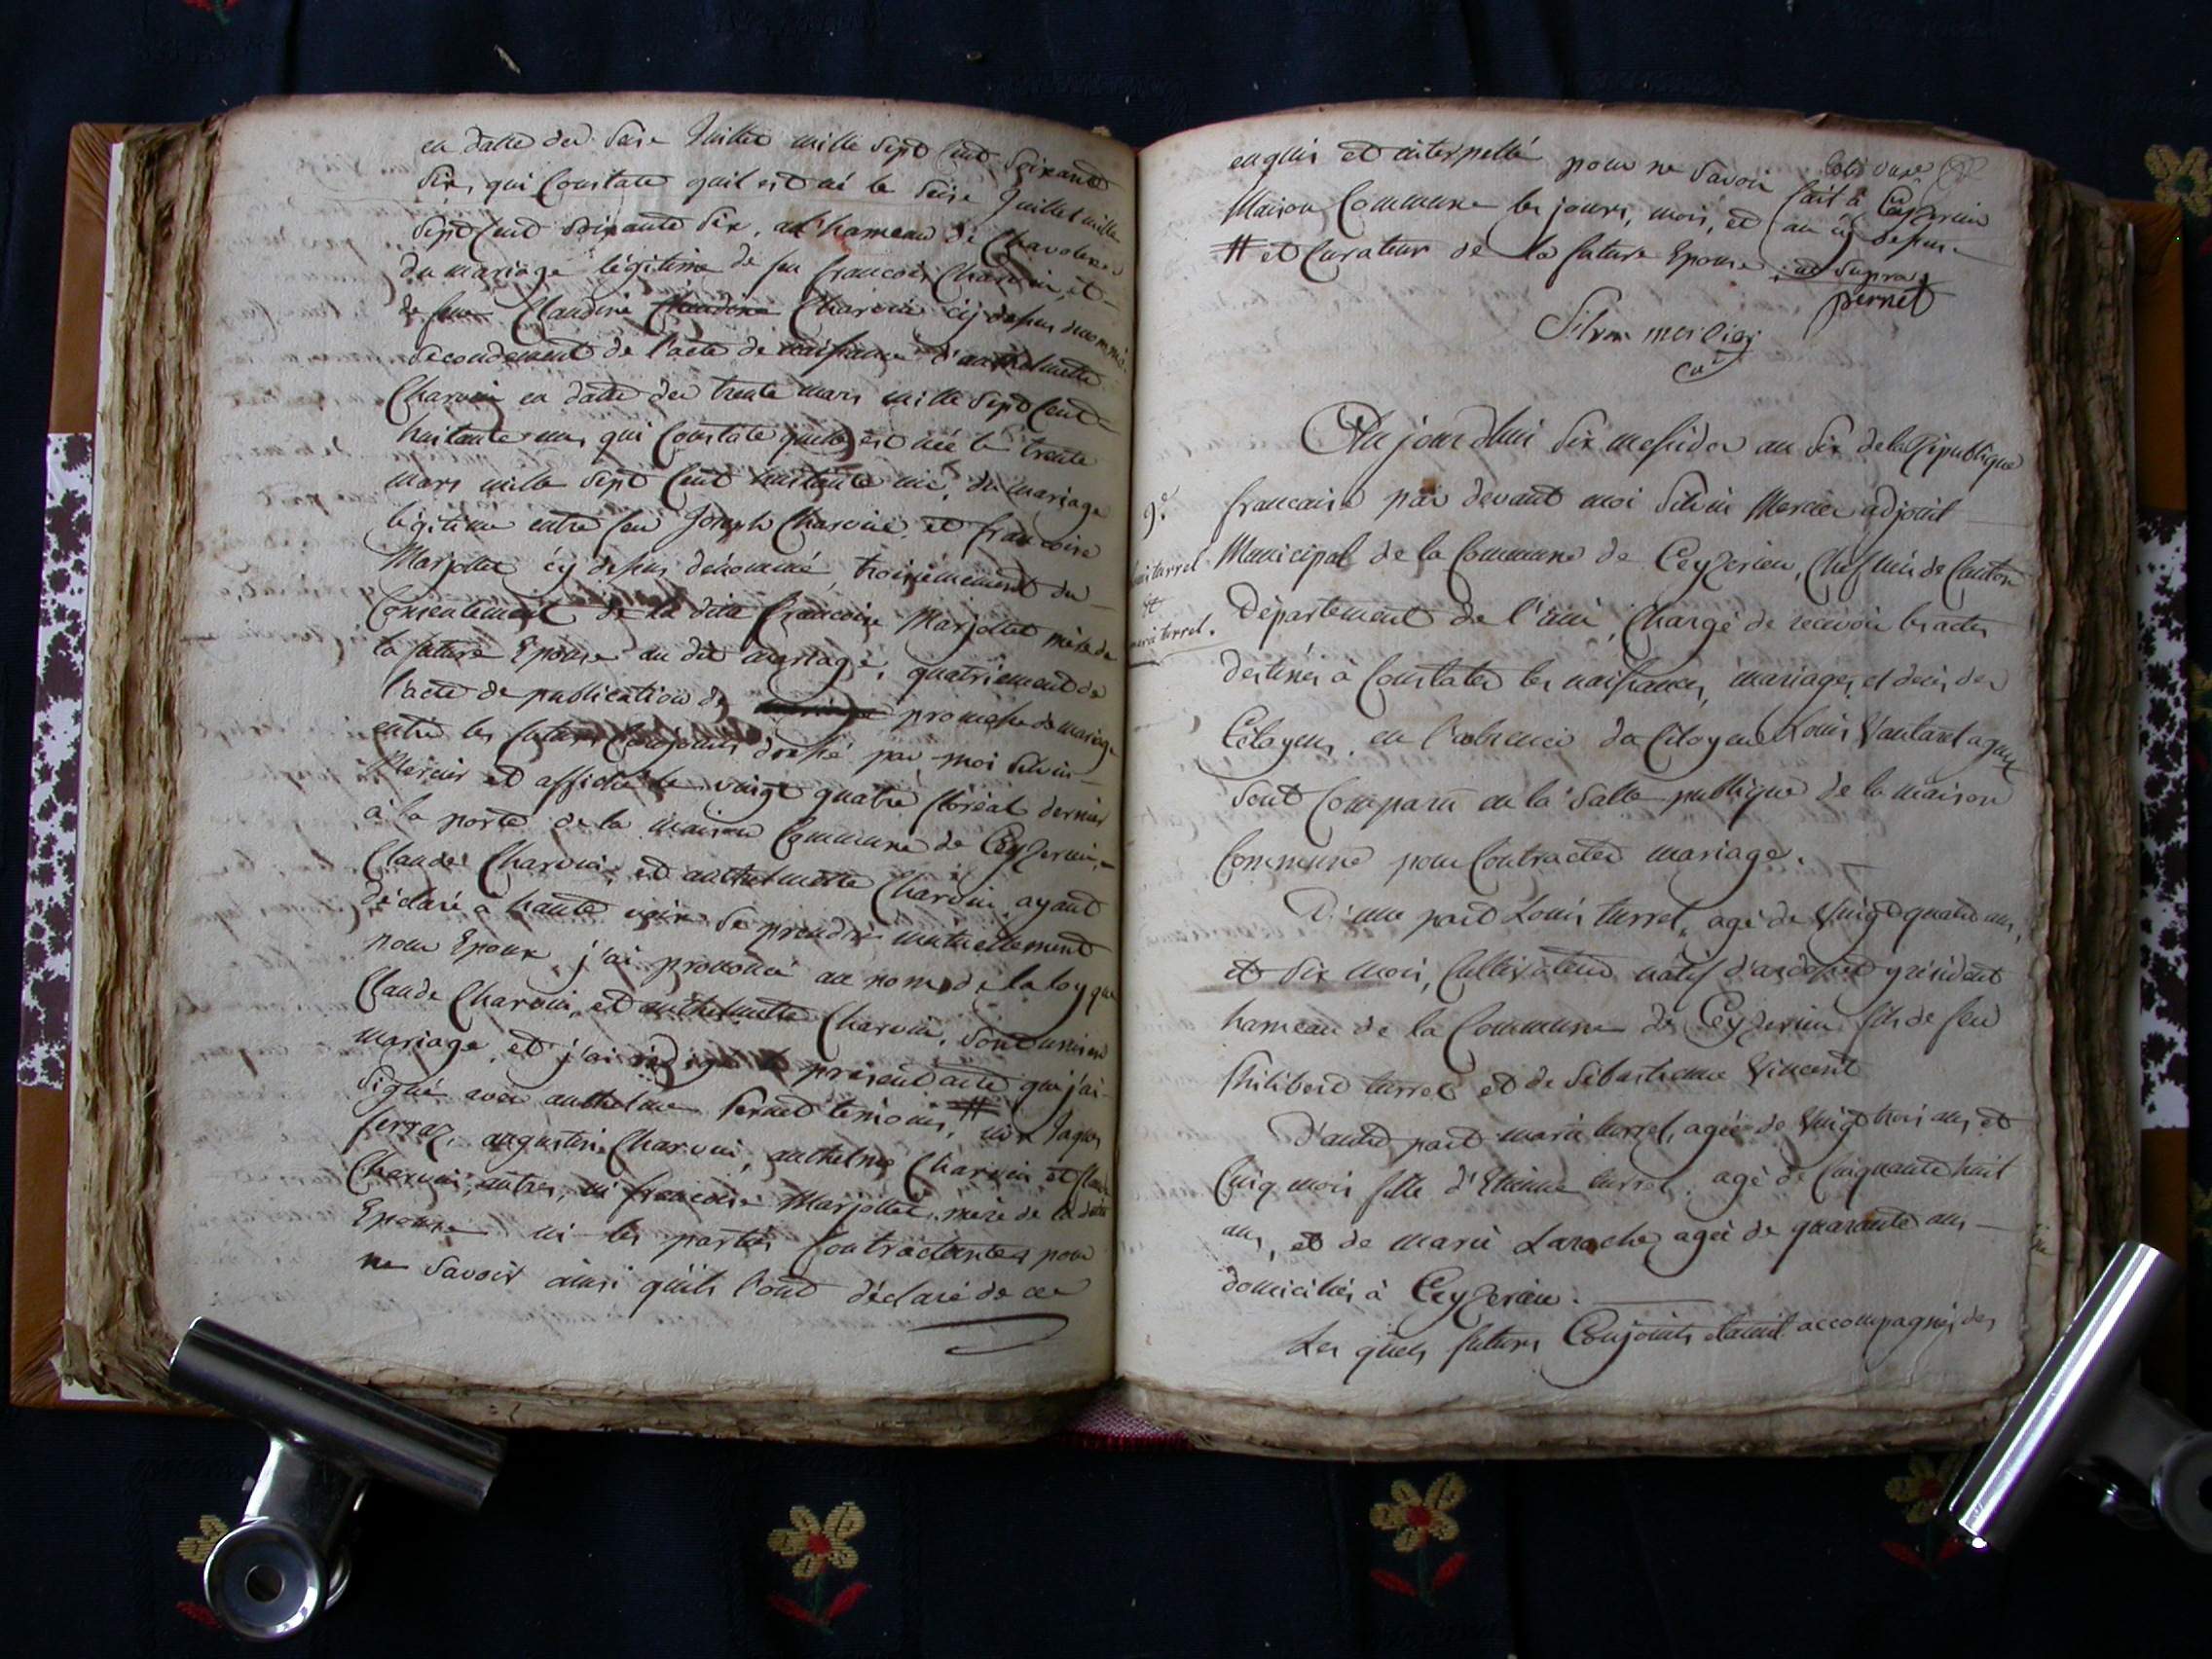 en datte du seise Juillet mille sept cent soixante
six, qui Constate quil est né le seise Juillet mille
sept cent soixante six, au hameau de
du mariage légitime de feu francois Charvin, et
de feue Claudine Claudine Charvin cy dessus denommé
secondement de l'acte de naissance d'anthelmette
Charvin en datte du trente mars mille sept cent
huitante un, qui Constate quelle est née le trente
mars mille sept cent huitante un, du mariage
légitime entre feu Joseph Charvin, et francoise
Marjollet cy dessus dénommé, troisiemement du
Consentement de la dite francoise Marjollet mère de
la future Epouse au dit mariage, quatriement de
l'acte de publication de mariage promesse de mariage
entre les futurs Conjoints dressé par moi Silvin
Mercier et affiché le vingt quatre floréal dernier
à la porte de la maison Commune de Ceyzerieu,
Claude Charvin, et anthelmette Charvin, ayant
déclaré à haute voix se prendre mutuellement
pour Epoux, j'ai prononcé au nom de la loy que
Claude Charvin, et anthelmette Charvin, sont unis en
mariage, et j'ai rédigé le présent acte que j'ai
signé avec anthelme Pernet temoins, # non Jaques
ferraz, augustin Charvin, anthelme Charvin et Claude
Charvin, autres, ni francoise Marjollet, mère de la dite
Epouse ni les parties Contractantes pour
ne savoir ainsi qu'ils l'ont déclaré de ce
enquis et interpellé pour ne savoir fait à Ceyzerieu
Maison Commune les jours, mois, et an cy dessus
# et Curateur de la future Epouse, ut supra
pernet
Silvin mercier
Aujourdhui six messidor an six de la République
9e
francaise par devant moi Silvin Mercier adjoint
Municipal de la Commune de Ceyzerieu, Chef lieu de Canton
turrel
et
marie turrel.
Département de l'ain, Chargé de recevoir les actes
destinés à Constater les naissances, mariages, et décès des
Citoyens, en l'absence du Citoyen Louis Vautaret agent
sont Comparu en la Salle publique de la maison
Commune pour Contracter mariage.
D'une part Louis turrel, agé de Vingt quatre ans,
et six mois, Cultivateur natif d'ardosset y résident
hameau de la Commune de Ceyzerieu fils de feu
Philibert turrel et de Sébastienne Vincent
D'autre part marie turrel, agée de Vingt trois ans et
Cinq mois fille d'Etienne turrel, agé de Cinquante huit
ans, et de marie Laroche agée de quarante ans
domiciliés à Ceyzerieu.
Les quels futurs Conjoints étaient accompagnés des